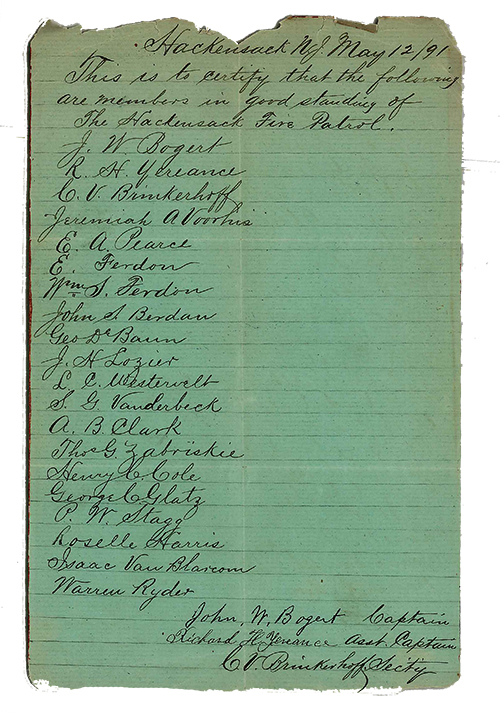 Hackensack NJ May 12/91
This is to certify that the following
are members in good standing of
The Hackensack Fire Patrol.
J. W Bogert
R. H. Yereance
C. V. Brinkerhoff
Jeremiah A Voorhis
E. A. Pearce
E. Ferdon
Wm S. Ferdon
John S Berdan
Geo De Baun
J. H Lozier
L. C. Westervelt
S. G. Vanderbeck
A. B. Clark
Thos G. Zabriskie
Henry C. Cole
George C Glatz
P. W. Stagg
Roselle Harris
Isaac Van Blarcom
Warren Ryder
John, W, Bogert Captain
Richard H. Yereance Asst. Captain
C. V. Brinkerhoff Secty